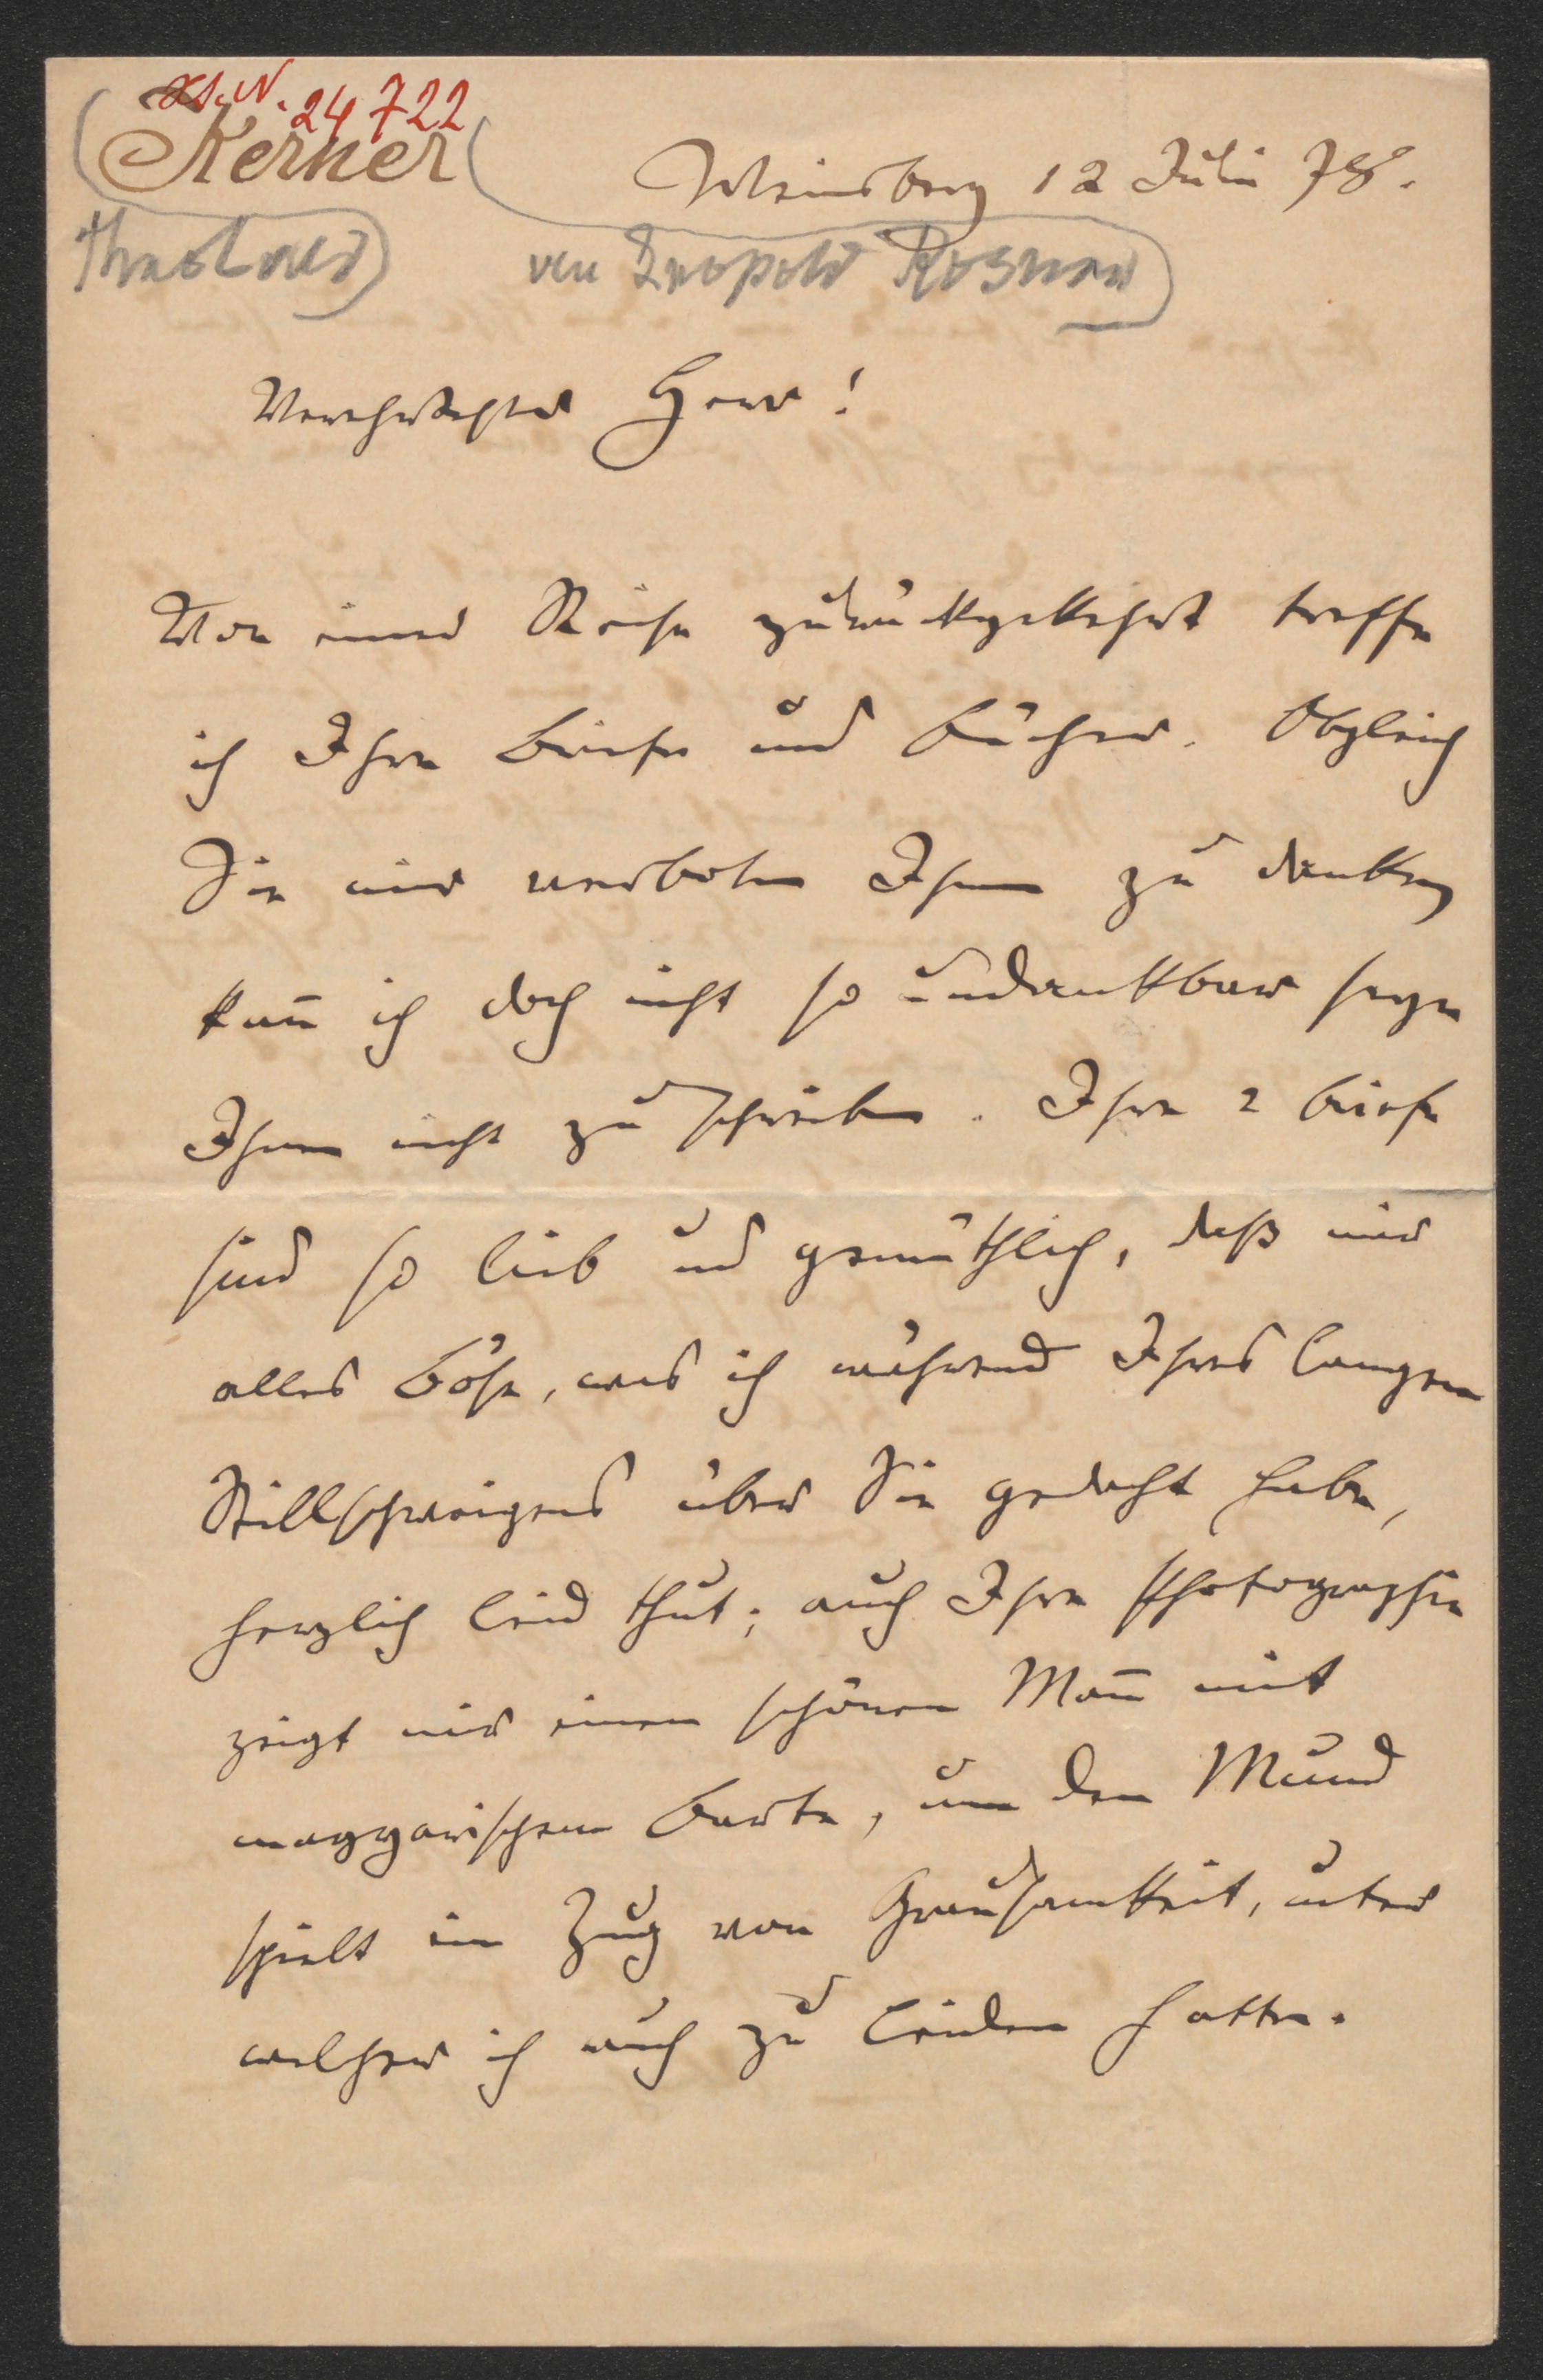 H. I. N. 24722
Kerner
Weinsberg 12 Juli 78.
Theobald
von Leopold Rosner
Verehrtester Herr!
Von einer Reise zurückgekehrt treffe
ich Ihre Briefe und Bücher. Obgleich
Sie mir verboten Ihnen zu danken
kañ ich doch nicht so undankbar seyn
Ihnen nicht zu schreiben. Ihre 2 Briefe
sind so lieb und gemüthlich, daß mir
alles Böse, was ich während Ihres langen
Stillschweigens über Sie gedacht habe,
herzlich leid thut; auch Ihre Photographie
zeigt mir einen schönen Mañ mit
magyarischem Barte, um den Mund
spielt ein Zug von Grausamkeit, unter
welcher ich auch zu leiden hatte.